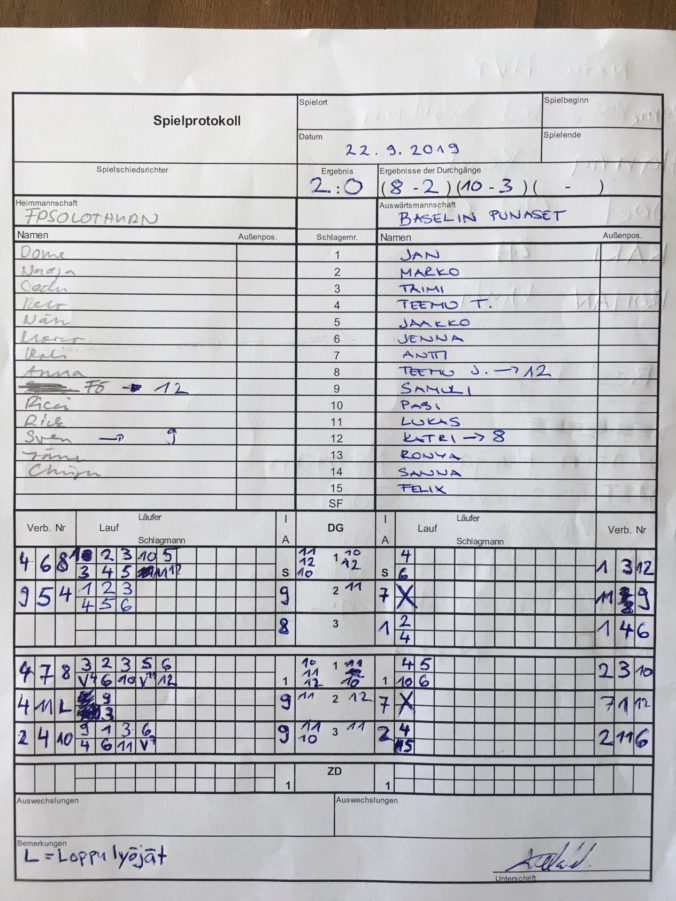 Spielprotokoll
Spielort
Spielbeginn
Datum 22.9.2019
Spielende
Spielschiedsrichter
Ergebnis
2:0
Ergebnisse der Durchgänge
(8 - 2) (10 - 3) ( - )
Heimmannschaft
FPSOLOTHURN
Auswärtsmannschaft
BASELIN PUNASET
Namen Außenpos. Schlagernr. Namen Außenpos.
Dome 1 JAN
2 MARKO
3 TAIMI
4 TEEMU T.
5 JAAKKO
6 JENNA
7 ANTTI
Anna 8 TEEMU J. → 12
Fö → 12 9 SAMULI
Ricci 10 PASI
Rick 11 LUKAS
Sven → 9 12 KATRI → 8
13 RONYA
14 SANNA
15 FELIX
SF
Verb. Nr Lauf Läufer Schlagmann I A DG I A Lauf Läufer Schlagmann Verb. Nr
4 6 8 2 3 10 5 11 1 10 4
3 4 5 S 12 12 10 S 6 1 3 12
9 5 4 1 2 3 9 2 11 7 X 11 9
4 5 6
8 3 1 2 1 4 6
4
4 7 8 3 2 3 5 6 10 1 4 5 2 3 10
6 10 12 1 11 12 10 1 10 6
4 11 L 9 9 11 2 12 7 X 7 1 12
3
2 4 10 9 1 3 6 9 11 3 11 2 4 2 11 6
4 6 11 10
1 ZD 1
Auswechslungen
Auswechslungen
Bemerkungen
L = Loppulyöjät
Unterschrift